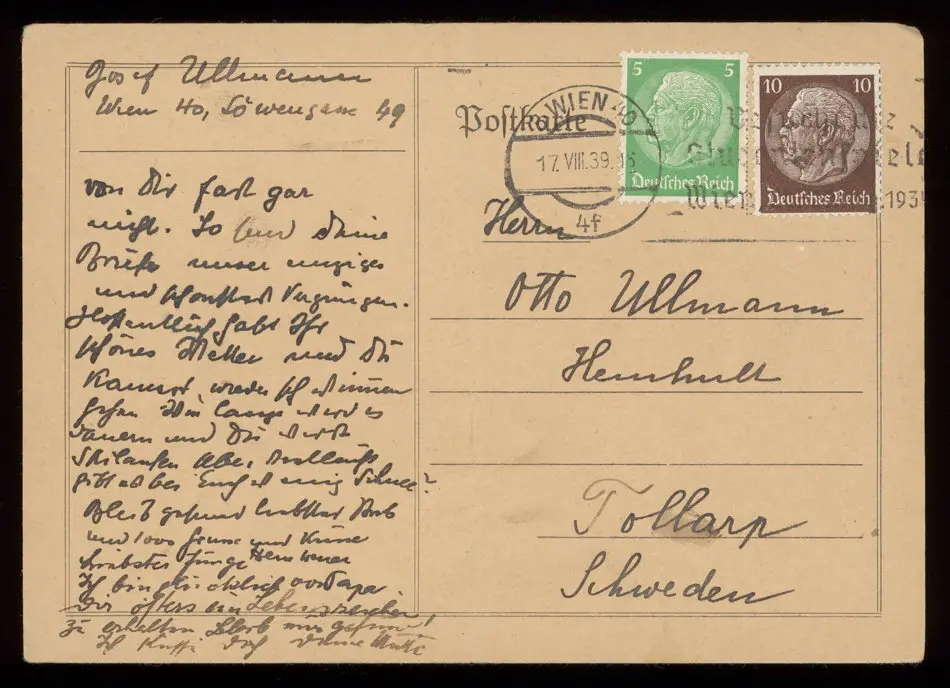 Josef Ullmann
Wien 40, Löwengasse 49
von Dir fast gar
nicht. So sind Deine
Briefe unser einziges
und schönstes Vergnügen.
Hoffentlich habt Ihr
schönes Wetter und Du
kannst wieder schwimmen
gehen. Wie lange wird es
dauern und Du wirst
Skilaufen. Aber vielleicht
gibt es bei Euch wenig Schnee?
Bleib gesund liebster Bub
und 1000 Grüsse und Küsse
Liebster Junge
Ich bin glücklich von
Dir öfters ein Lebenszeichen
zu erhalten. Bleib nur gesund!
Ich küsse Dich Deine Mutti
Postkarte
WIEN 40
17.VIII.39.
4f
Wien
5 5
Deutsches Reich
10 10
Deutsches Reich
Herrn
Otto Ullmann
Hemhult
Tollarp
Schweden